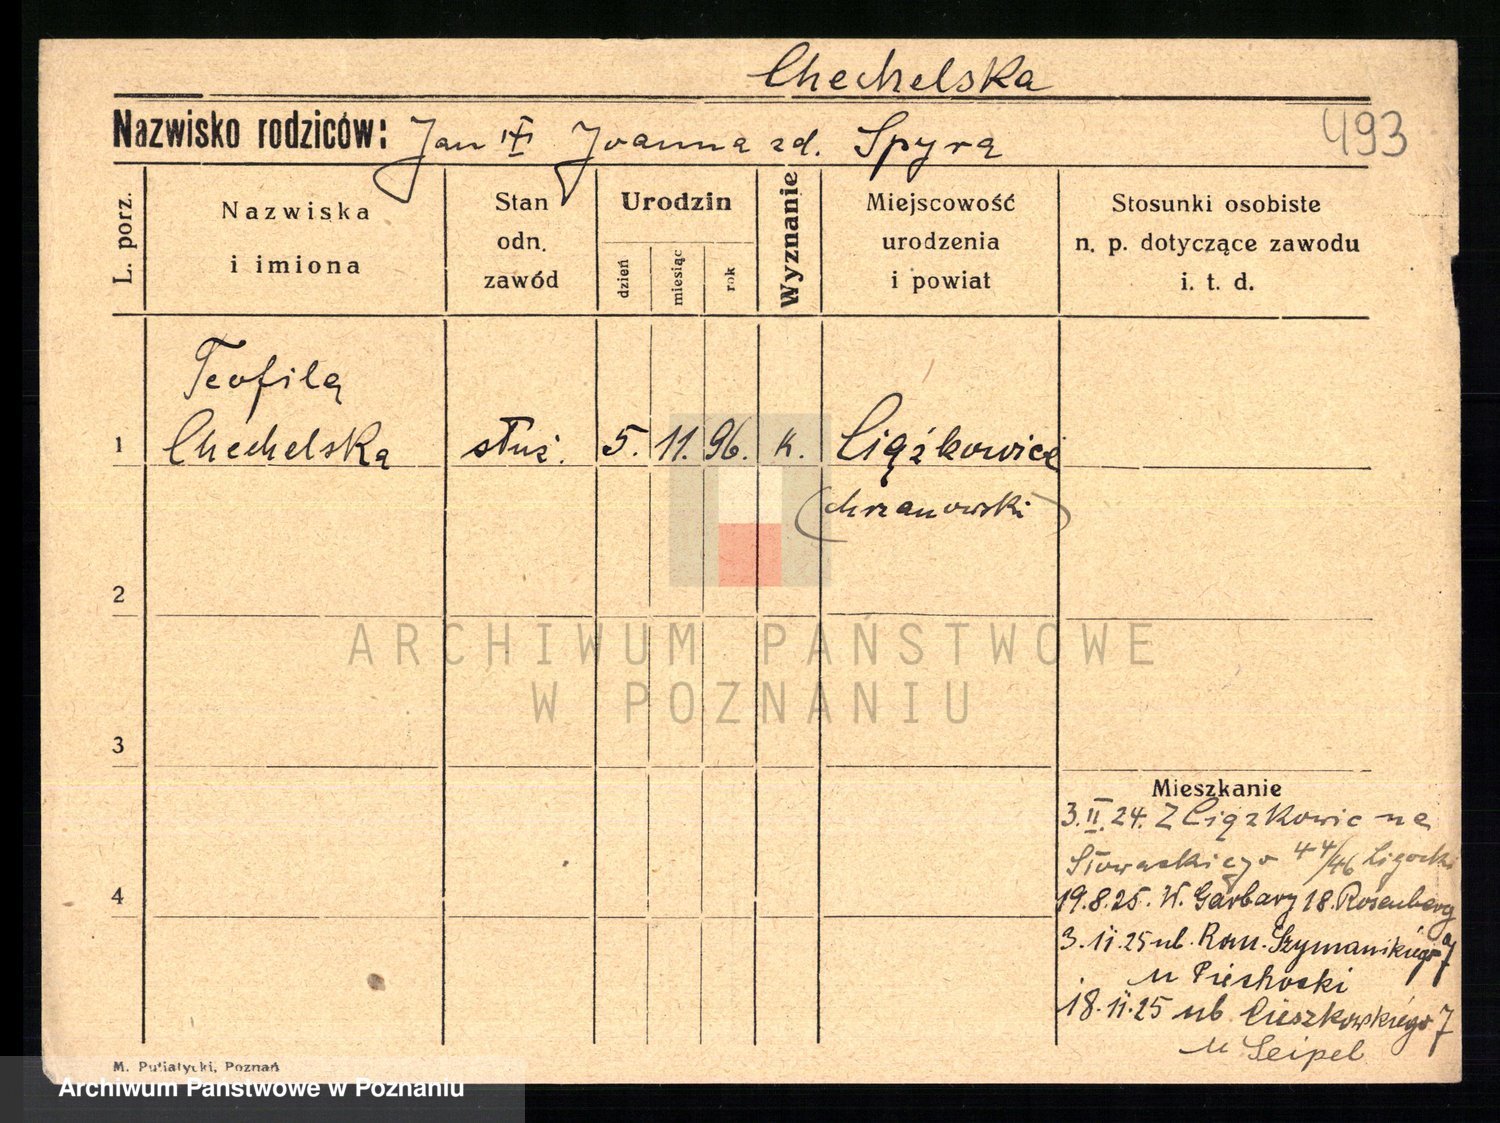 Chechelska
Nazwisko rodziców: Jan Joanna zd. Spyra
493
L. porz.
Nazwiska
i imiona
Stan
odn.
zawód
Urodzin
dzień
miesiąc
rok
Wyznanie
Miejscowość
urodzenia
i powiat
Stosunki osobiste
n. p. dotyczące zawodu
i. t. d.
Teofila
1 Chechelska służ. 5. 11. 96. k. Ciążkowice
(chrzanowski)
2
3
4
Mieszkanie
3.II.24. Z Ciążkowic na
Słowackiego 44/46 Ligocki
19.8.25. W. Garbary 18. Rosenberg
3.11.25 ul. Rom. Szymańskiego 7
u Piechocki
18.11.25 ul. Cieszkowskiego 7
u Seipel
M. Putiatycki, Poznań
ARCHIWUM PAŃSTWOWE
W POZNANIU
Archiwum Państwowe w Poznaniu